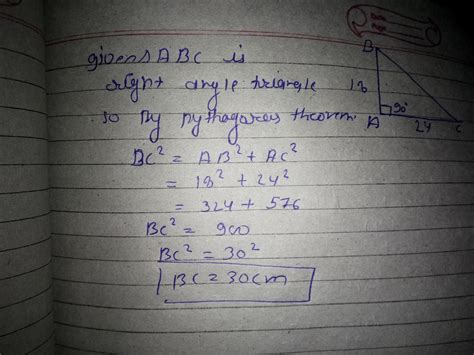 given ABC is
right angle triangle
so by pythagores theorem
BC² = AB² + AC²
= 18² + 24²
= 324 + 576
BC² = 900
BC² = 30²
BC = 30cm
B
18
90°
A
24
C